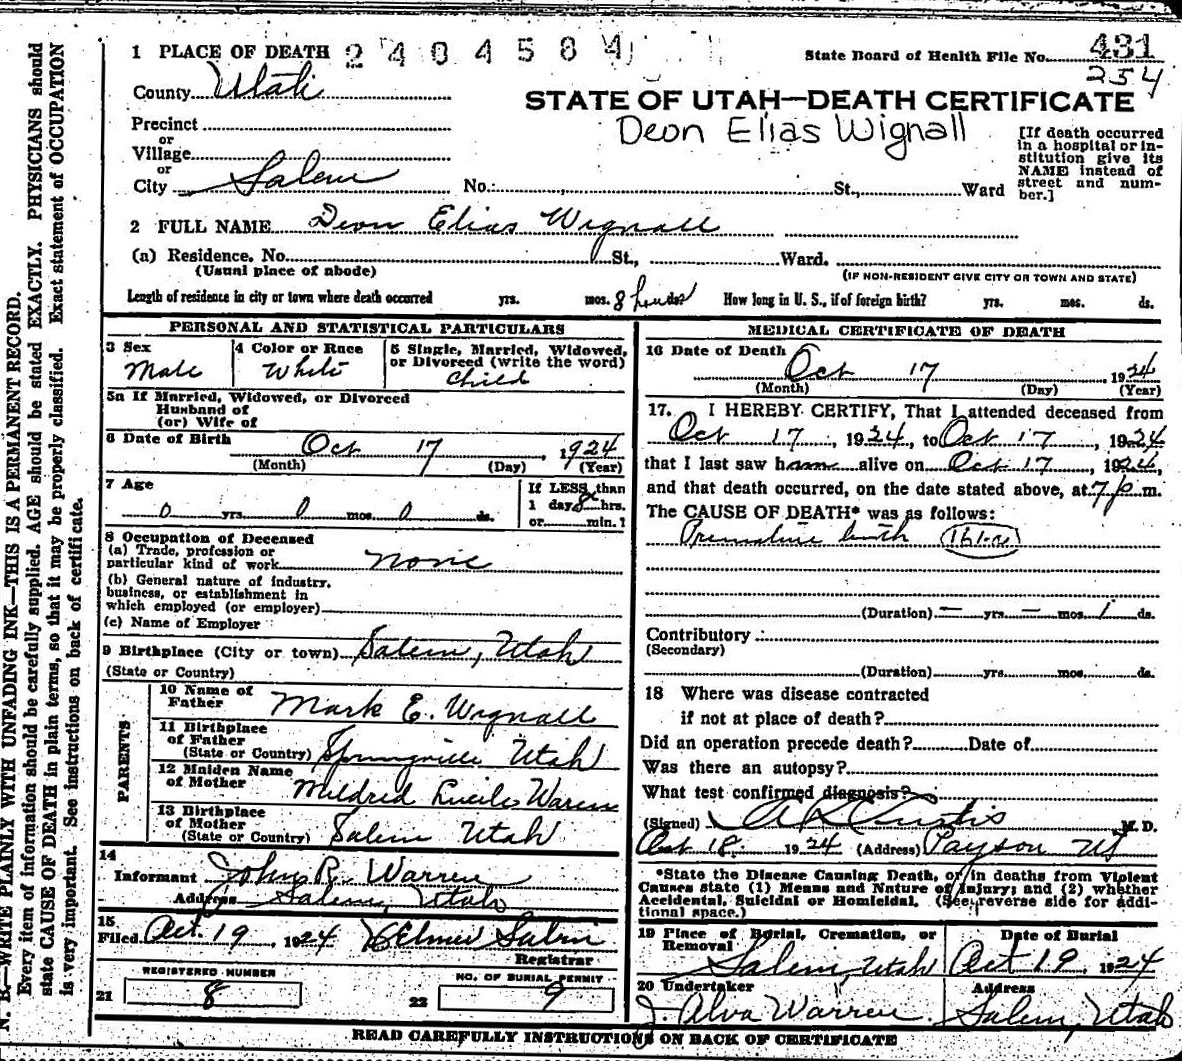 N. B.—WRITE PLAINLY WITH UNFADING INK—THIS IS A PERMANENT RECORD.
Every item of information should be carefully supplied. AGE should be stated EXACTLY. PHYSICIANS should
state CAUSE OF DEATH in plain terms, so that it may be properly classified. Exact statement of OCCUPATION
is very important. See instructions on back of certificate.
1 PLACE OF DEATH 2404584
State Board of Health File No. 431
254
County Utah
STATE OF UTAH—DEATH CERTIFICATE
Deon Elias Wignall
Precinct
or
Village
or
City Salem No.: St., Ward
[If death occurred
in a hospital or in-
stitution give its
NAME instead of
street and num-
ber.]
2 FULL NAME Deon Elias Wignall
(a) Residence. No. St., Ward.
(Usual place of abode) (IF NON-RESIDENT GIVE CITY OR TOWN AND STATE)
Length of residence in city or town where death occurred yrs. mos. 8 ds. How long in U. S., if of foreign birth? yrs. mos. ds.
PERSONAL AND STATISTICAL PARTICULARS
3 Sex
Male
4 Color or Race
White
5 Single, Married, Widowed,
or Divorced (write the word)
Child
5a If Married, Widowed, or Divorced
Husband of
(or) Wife of
6 Date of Birth
Oct 17, 1924
(Month) (Day) (Year)
7 Age
0 yrs. 0 mos. 0 ds.
If LESS than
1 day 8 hrs.
or min.?
8 Occupation of Deceased
(a) Trade, profession or
particular kind of work none
(b) General nature of industry,
business, or establishment in
which employed (or employer)
(c) Name of Employer
9 Birthplace (City or town) Salem, Utah
(State or Country)
PARENTS
10 Name of
Father Mark E. Wignall
11 Birthplace
of Father
(State or Country) Springville Utah
12 Maiden Name
of Mother Mildred Lucile Warren
13 Birthplace
of Mother
(State or Country) Salem Utah
14
Informant John R. Warren
Address Salem, Utah
15
Filed Oct. 19, 1924
Registrar
REGISTERED NUMBER
21 8
NO. OF BURIAL PERMIT
22 9
MEDICAL CERTIFICATE OF DEATH
16 Date of Death
Oct 17, 1924
(Month) (Day) (Year)
17. I HEREBY CERTIFY, That I attended deceased from
Oct 17, 1924, to Oct 17, 1924
that I last saw h alive on Oct 17, 1924,
and that death occurred, on the date stated above, at 7 p m.
The CAUSE OF DEATH* was as follows:
Premature birth 161-a
(Duration) — yrs. — mos. 1 ds.
Contributory
(Secondary)
(Duration) yrs. mos. ds.
18 Where was disease contracted
if not at place of death?
Did an operation precede death? Date of
Was there an autopsy?
What test confirmed diagnosis?
(Signed) Curtis M. D.
Oct 18. 1924 (Address) Payson Ut
*State the Disease Causing Death, or in deaths from Violent
Causes state (1) Means and Nature of Injury; and (2) whether
Accidental, Suicidal or Homicidal. (See reverse side for addi-
tional space.)
19 Place of Burial, Cremation, or
Removal
Salem, Utah
Date of Burial
Oct 19. 1924
20 Undertaker
J. Alva Warren.
Address
Salem, Utah
READ CAREFULLY INSTRUCTIONS ON BACK OF CERTIFICATE